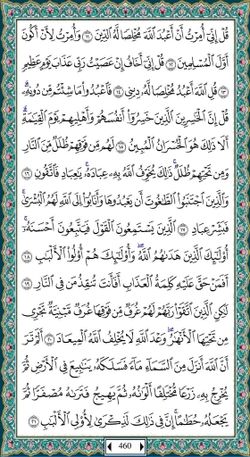 قُلْ إِنِّي أُمِرْتُ أَنْ أَعْبُدَ اللَّهَ مُخْلِصًا لَّهُ الدِّينَ ۝١١ وَأُمِرْتُ لِأَنْ أَكُونَ
أَوَّلَ الْمُسْلِمِينَ ۝١٢ قُلْ إِنِّي أَخَافُ إِنْ عَصَيْتُ رَبِّي عَذَابَ يَوْمٍ عَظِيمٍ
۝١٣ قُلِ اللَّهَ أَعْبُدُ مُخْلِصًا لَّهُ دِينِي ۝١٤ فَاعْبُدُوا مَا شِئْتُم مِّن دُونِهِ
قُلْ إِنَّ الْخَاسِرِينَ الَّذِينَ خَسِرُوا أَنفُسَهُمْ وَأَهْلِيهِمْ يَوْمَ الْقِيَامَةِ
أَلَا ذَٰلِكَ هُوَ الْخُسْرَانُ الْمُبِينُ ۝١٥ لَهُم مِّن فَوْقِهِمْ ظُلَلٌ مِّنَ النَّارِ
وَمِن تَحْتِهِمْ ظُلَلٌ ذَٰلِكَ يُخَوِّفُ اللَّهُ بِهِ عِبَادَهُ يَا عِبَادِ فَاتَّقُونِ ۝١٦
وَالَّذِينَ اجْتَنَبُوا الطَّاغُوتَ أَن يَعْبُدُوهَا وَأَنَابُوا إِلَى اللَّهِ لَهُمُ الْبُشْرَىٰ
فَبَشِّرْ عِبَادِ ۝١٧ الَّذِينَ يَسْتَمِعُونَ الْقَوْلَ فَيَتَّبِعُونَ أَحْسَنَهُ
أُولَٰئِكَ الَّذِينَ هَدَاهُمُ اللَّهُ وَأُولَٰئِكَ هُمْ أُولُو الْأَلْبَابِ ۝١٨
أَفَمَنْ حَقَّ عَلَيْهِ كَلِمَةُ الْعَذَابِ أَفَأَنتَ تُنقِذُ مَن فِي النَّارِ ۝١٩
لَٰكِنِ الَّذِينَ اتَّقَوْا رَبَّهُمْ لَهُمْ غُرَفٌ مِّن فَوْقِهَا غُرَفٌ مَّبْنِيَّةٌ تَجْرِي
مِن تَحْتِهَا الْأَنْهَارُ وَعْدَ اللَّهِ لَا يُخْلِفُ اللَّهُ الْمِيعَادَ ۝٢٠ أَلَمْ تَرَ
أَنَّ اللَّهَ أَنزَلَ مِنَ السَّمَاءِ مَاءً فَسَلَكَهُ يَنَابِيعَ فِي الْأَرْضِ ثُمَّ
يُخْرِجُ بِهِ زَرْعًا مُّخْتَلِفًا أَلْوَانُهُ ثُمَّ يَهِيجُ فَتَرَاهُ مُصْفَرًّا ثُمَّ
يَجْعَلُهُ حُطَامًا إِنَّ فِي ذَٰلِكَ لَذِكْرَىٰ لِأُولِي الْأَلْبَابِ ۝٢١
460